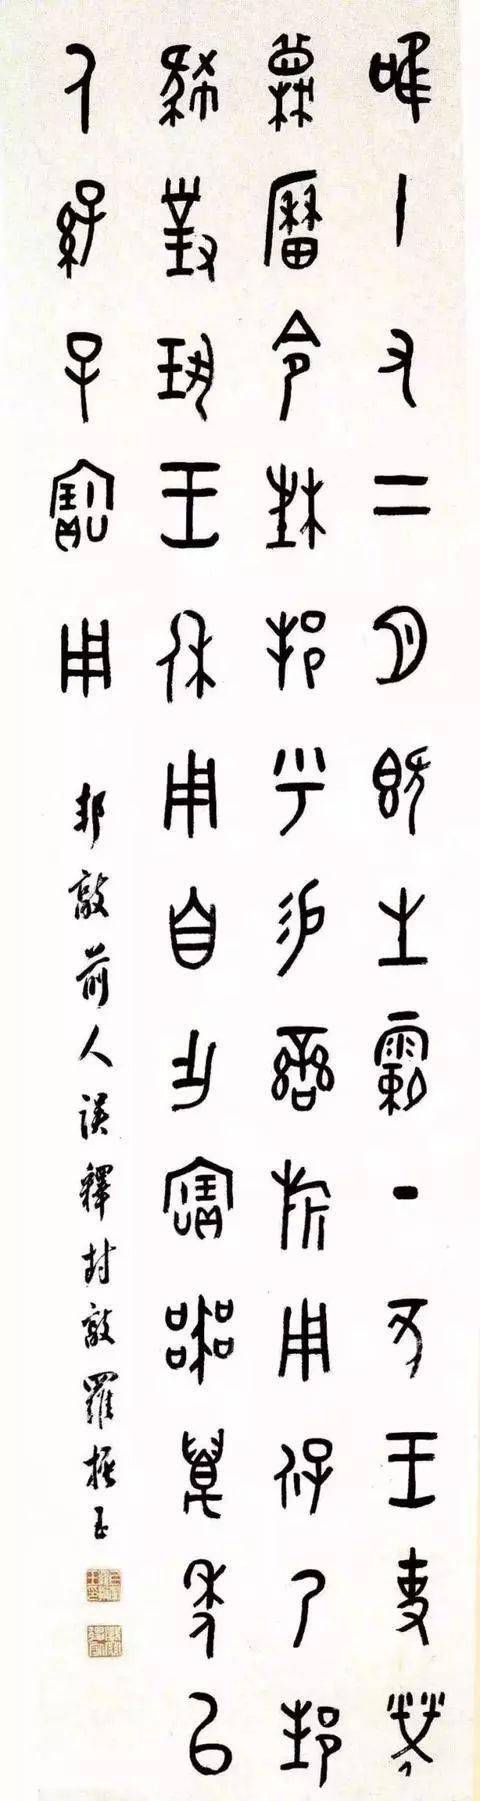 唯十又二月既生霸丁亥王事榮
蔑曆令邦乎易鑾旂用保厥邦
對揚王休用自乍寶器萬年以
厥孫子寶用
邦敦前人誤釋封敦羅振玉